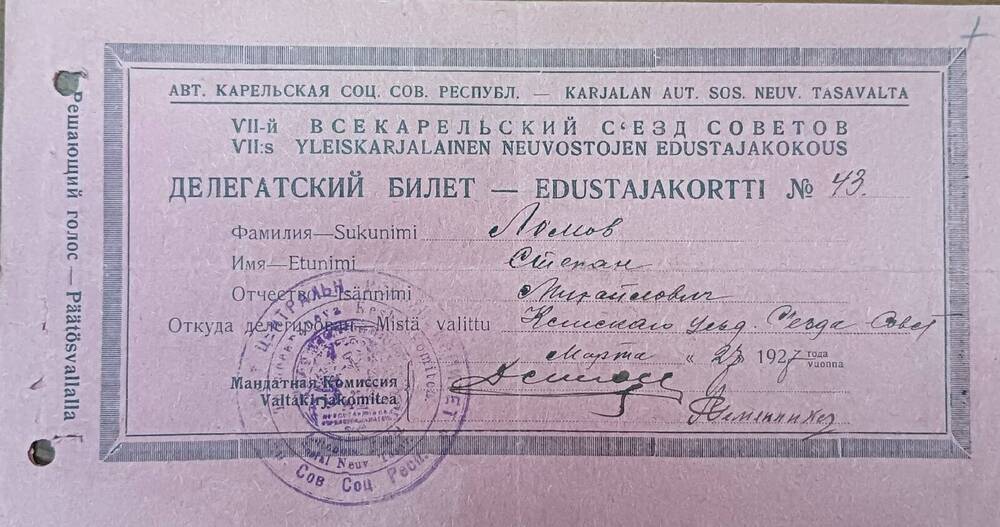 Решающий голос — Päätösvallalla
АВТ. КАРЕЛЬСКАЯ СОЦ. СОВ. РЕСПУБЛ. — KARJALAN AUT. SOS. NEUV. TASAVALTA
VII-й ВСЕКАРЕЛЬСКИЙ С‘ЕЗД СОВЕТОВ
VII:s YLEISKARJALAINEN NEUVOSTOJEN EDUSTAJAKOKOUS
ДЕЛЕГАТСКИЙ БИЛЕТ — EDUSTAJAKORTTI № 43.
Фамилия—Sukunimi Ломов
Имя—Etunimi Степан
Отчество—Isännimi Михайлович
Откуда делегирован—Mistä valittu Кемскаго Уезд. Съезда Совет
Марта „ 1927 года vuonna
Мандатная Комиссия
Valtakirjakomitea
ЦЕНТРАЛЬН
Сов Соц. Респ.
Neuv.